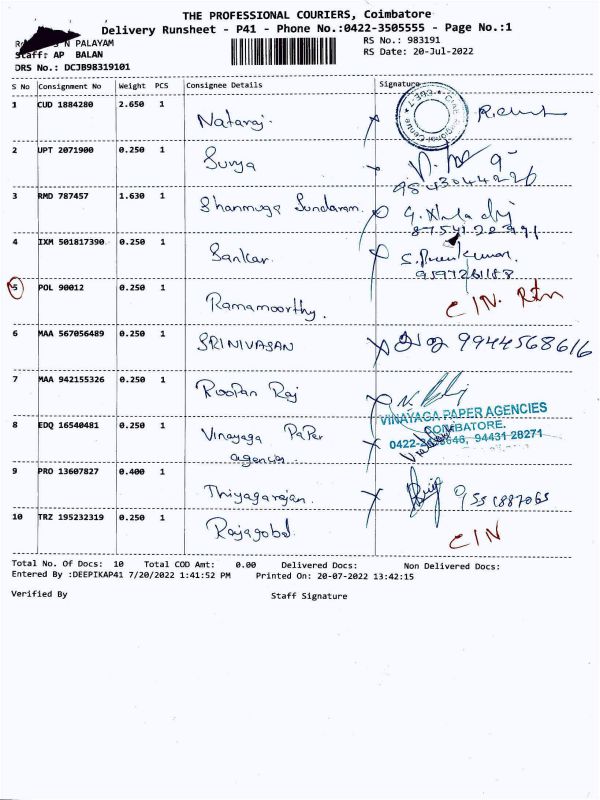 THE PROFESSIONAL COURIERS, Coimbatore
Delivery Runsheet - P41 - Phone No.:0422-3505555 - Page No.:1
N PALAYAM
RS No.: 983191
Staff: AP BALAN
RS Date: 20-Jul-2022
DRS No.: DCJB98319101
S No Consignment No Weight PCS Consignee Details Signature
1 CUD 1884280 2.650 1 Nataraj.
2 UPT 2071900 0.250 1 Surya
9843044226
3 RMD 787457 1.630 1 Shanmuga Sundaram.
4 IXM 501817390 0.250 1 Sankar.
9597261188
5 POL 90012 0.250 1 Ramamoorthy. CIN. Rtn
6 MAA 567056489 0.250 1 SRINIVASAN 9944568616
7 MAA 942155326 0.250 1 Roopan Raj
VINAYAGA PAPER AGENCIES
COIMBATORE.
94431 28271
8 EDQ 16540481 0.250 1 Vinayaga PaPer
agencies.
9 PRO 13607827 0.400 1 Thiyagarajan.
10 TRZ 195232319 0.250 1 Rajagobal. CIN
Total No. Of Docs: 10 Total COD Amt: 0.00 Delivered Docs: Non Delivered Docs:
Entered By :DEEPIKAP41 7/20/2022 1:41:52 PM Printed On: 20-07-2022 13:42:15
Verified By Staff Signature